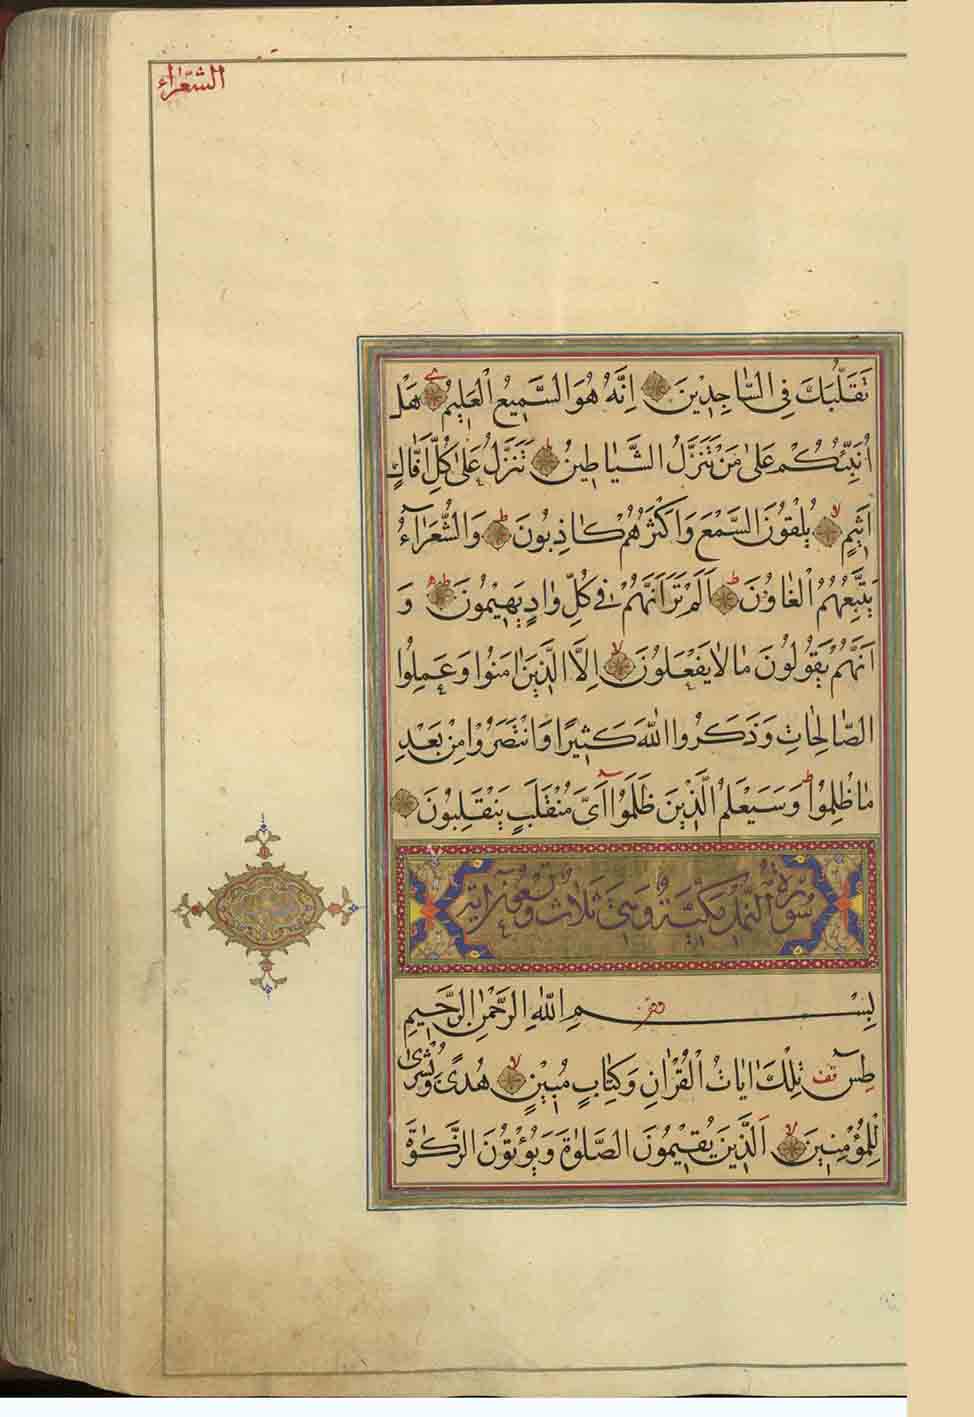 الشعراء
تَقَلُّبَكَ فِي السَّاجِدِيْنَ اِنَّهُ هُوَ السَّمِيعُ الْعَلِيمُ هَلْ
اُنَبِّئُكُمْ عَلٰى مَنْ تَنَزَّلُ الشَّيَاطِينُ تَنَزَّلُ عَلٰى كُلِّ اَفَّاكٍ
اَثِيمٍ يُلْقُونَ السَّمْعَ وَاَكْثَرُهُمْ كَاذِبُونَ وَالشُّعَرَآءُ
يَتَّبِعُهُمُ الْغَاوُنَ اَلَمْ تَرَ اَنَّهُمْ فِي كُلِّ وَادٍ يَهِيْمُونَ وَ
اَنَّهُمْ يَقُولُونَ مَا لَا يَفْعَلُونَ اِلَّا الَّذِينَ اٰمَنُوا وَعَمِلُوا
الصَّالِحَاتِ وَذَكَرُوا اللّٰهَ كَثِيرًا وَانْتَصَرُوا مِنْ بَعْدِ
مَا ظُلِمُوا وَسَيَعْلَمُ الَّذِينَ ظَلَمُوا اَيَّ مُنْقَلَبٍ يَنْقَلِبُونَ
سورة النمل مكية وهي ثلاث وتسعون اية
بِسْمِ اللّٰهِ الرَّحْمٰنِ الرَّحِيمِ
طٰسٓ تِلْكَ اٰيَاتُ الْقُرْاٰنِ وَكِتَابٍ مُبِيْنٍ هُدًى وَبُشْرٰى
لِلْمُؤْمِنِينَ اَلَّذِينَ يُقِيْمُونَ الصَّلٰوةَ وَيُؤْتُونَ الزَّكٰوةَ